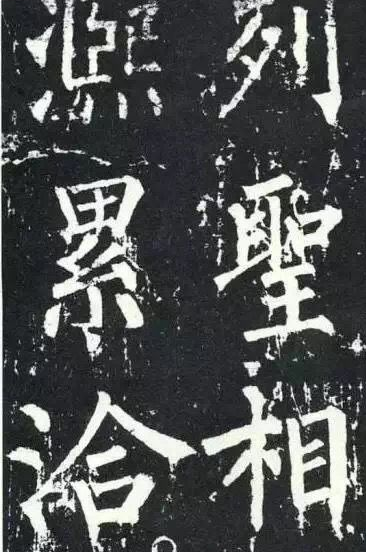 列聖相
凞累洽